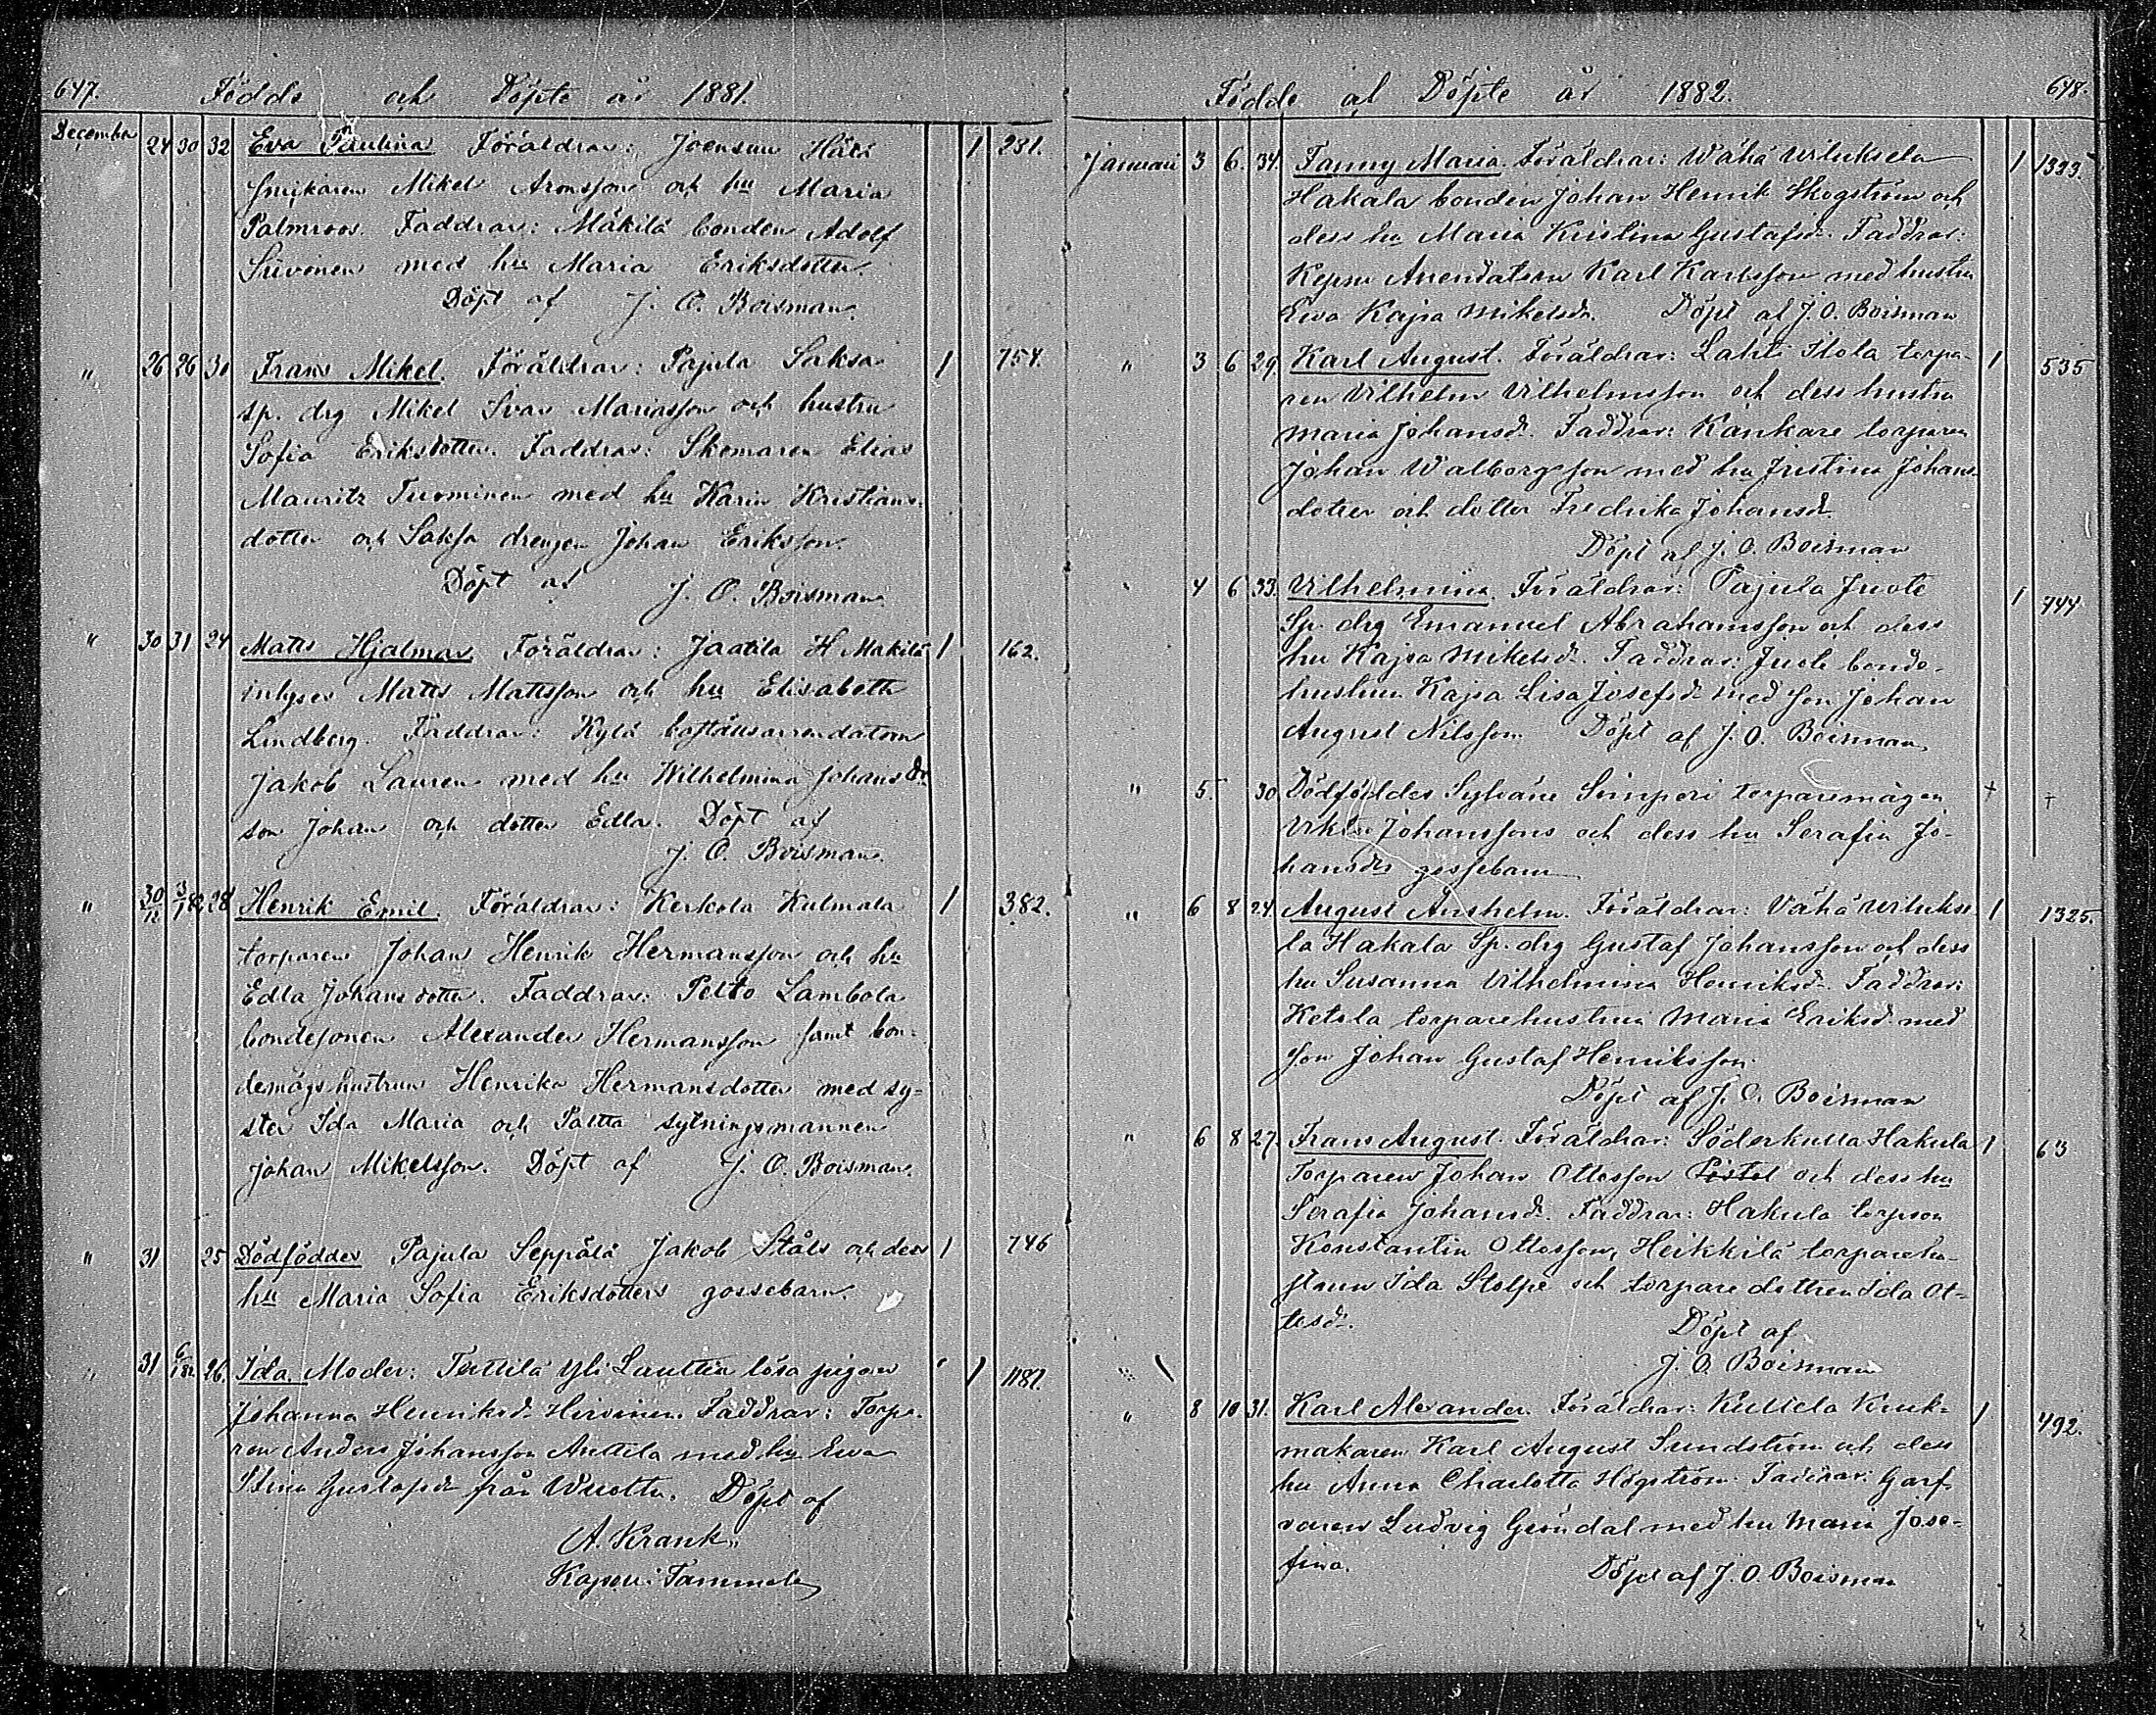 647.
Födde och Döpte år 1881.
December 24 30 32 Eva Paulina Föräldrar: Joensuu Hätä 1 281.
snickaren Mikel Aronsson och hu Maria
Palmroos. Faddrar: Mäkilä bonden Adolf
Siivonen med hu Maria Eriksdotter.
Döpt af J. O. Boisman.
" 26 26 31 Frans Mikel. Föräldrar: Pajula Saksa 1 754.
sp. drg Mikel Ivar Mariasson och hustru
Sofia Eriksdotter. Faddrar: Skomaren Elias
Mauritz Tuominen med hu Karin Kristians-
dotter och Saksa drengen Johan Eriksson.
Döpt af J. O. Boisman.
" 30 31 24 Matts Hjalmar Föräldrar: Jaatila H Mäkilä 1 162.
inhyses Matts Mattsson och hu Elisabeth
Lindberg. Faddrar: Kylä bostäusarrendatorn
Jakob Lauren med hu Wilhelmina Johansdr
son Johan och dotter Edla. Döpt af
J. O. Boisman.
" 30/12 3/1 82 28 Henrik Emil. Föräldrar: Kerkola Kulmala 1 382.
torparen Johan Henrik Hermansson och hu
Edla Johansdotter. Faddrar: Pelto Lambola
bondesonen Alexander Hermansson samt bon-
demågshustrun Henrika Hermansdotter med sy=
ster Ida Maria och Pattta sytningsmannen
Johan Mikelsson. Döpt af J. O. Boisman.
" 31 25 Dödföddes Pajula Seppälä Jakob Ståls och dess 1 746
hu Maria Sofia Eriksdotters gossebarn.
" 31 6/1 82 26. Ida. Moder: Tuttila Yli Lauttia lösa pigan 1 1187.
Johanna Henriksd. Hirvinen. Faddrar: Torpa-
ren Anders Johansson Anttila med hu Eva
Stina Gustafsd. från Wuolta. Döpt af
A. Krank.
Kapell. i Tammela
Födde och Döpte år 1882.
648.
Januari 3 6. 34. Fanny Maria. Föräldrar: Wähä Wiluksela 1 1323.
Hakala bonden Johan Henrik Skogström och
dess hu Maria Kristina Gustafsd. Faddrar:
Kepsu Arrendatorn Karl Karlsson med hustru
Ewa Kajsa Mikelsdr. Döpt af J. O. Boisman
" 3 6 29. Karl August. Föräldrar: Lahti Itola torpa- 1 535
ren Vilhelm Vilhelmsson och dess hustru
Maria Johansd. Faddrar: Kankare torparen
Johan Walborgsson med hu Justina Johans-
dotter och dotter Fredrika Johansd.
Döpt af J. O. Boisman
" 4 6 33. Vilhelmina. Föräldrar: Pajula Juote 1 744.
Sp. drg Emanuel Abrahamsson och dess
hu Kajsa Mikelsd. Faddrar: Juote bonde-
hustrun Kajsa Lisa Josefsd. med son Johan
August Nilsson. Döpt af J. O. Boisman.
" 5. 30. Dödföddes Syhäne Simperi torparemågen † †
Viktor Johanssons och dess hu Serafia Jo-
hansdrs gossebarn
" 6 8 24. August Anshelm. Föräldrar: Vähä Wilukse- 1 1325.
la Hakala Sp. drg Gustaf Johansson och dess
hu Susanna Vilhelmina Henriksd. Faddrar:
Ketola torparehustru Maria Eriksd. med
son Johan Gustaf Henriksson.
Döpt af J. O. Boisman
" 6 8 27. Frans August. Föräldrar: Söderkulla Hakula 1 63
Torparen Johan Ottosson och dess hu
Serafia Johansd. Faddrar: Hakula torpson
Konstantin Ottosson, Heikkilä torparehu-
strun Ida Stolpe och torparedottren Ida Ot-
tosdr. Döpt af
J. O. Boisman
" 8 10 31. Karl Alexander. Föräldrar: Kultela Kruk= 1 492.
makaren Karl August Sundström och dess
hu Anna Charlotta Högström. Faddrar: Garf-
varen Ludvig Gröndal med hu Maria Jose-
fina. Döpt af J. O. Boisman